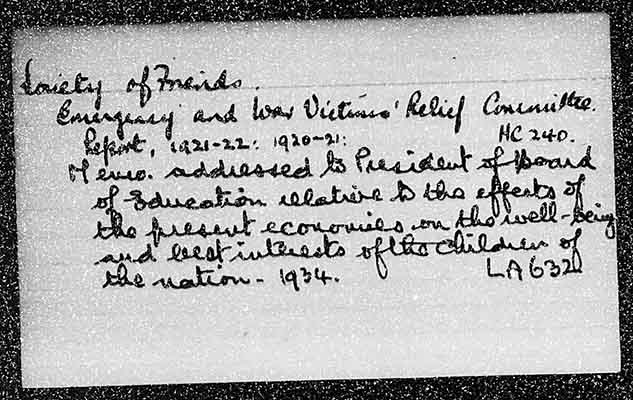 Society of Friends.
Emergency and War Victims' Relief Committee.
Report, 1921-22: 1920-21: HC 240.
Memo. addressed to President of Board
of Education relative to the effects of
the present economies on the well-being
and best interests of the children of
the nation - 1934. LA632